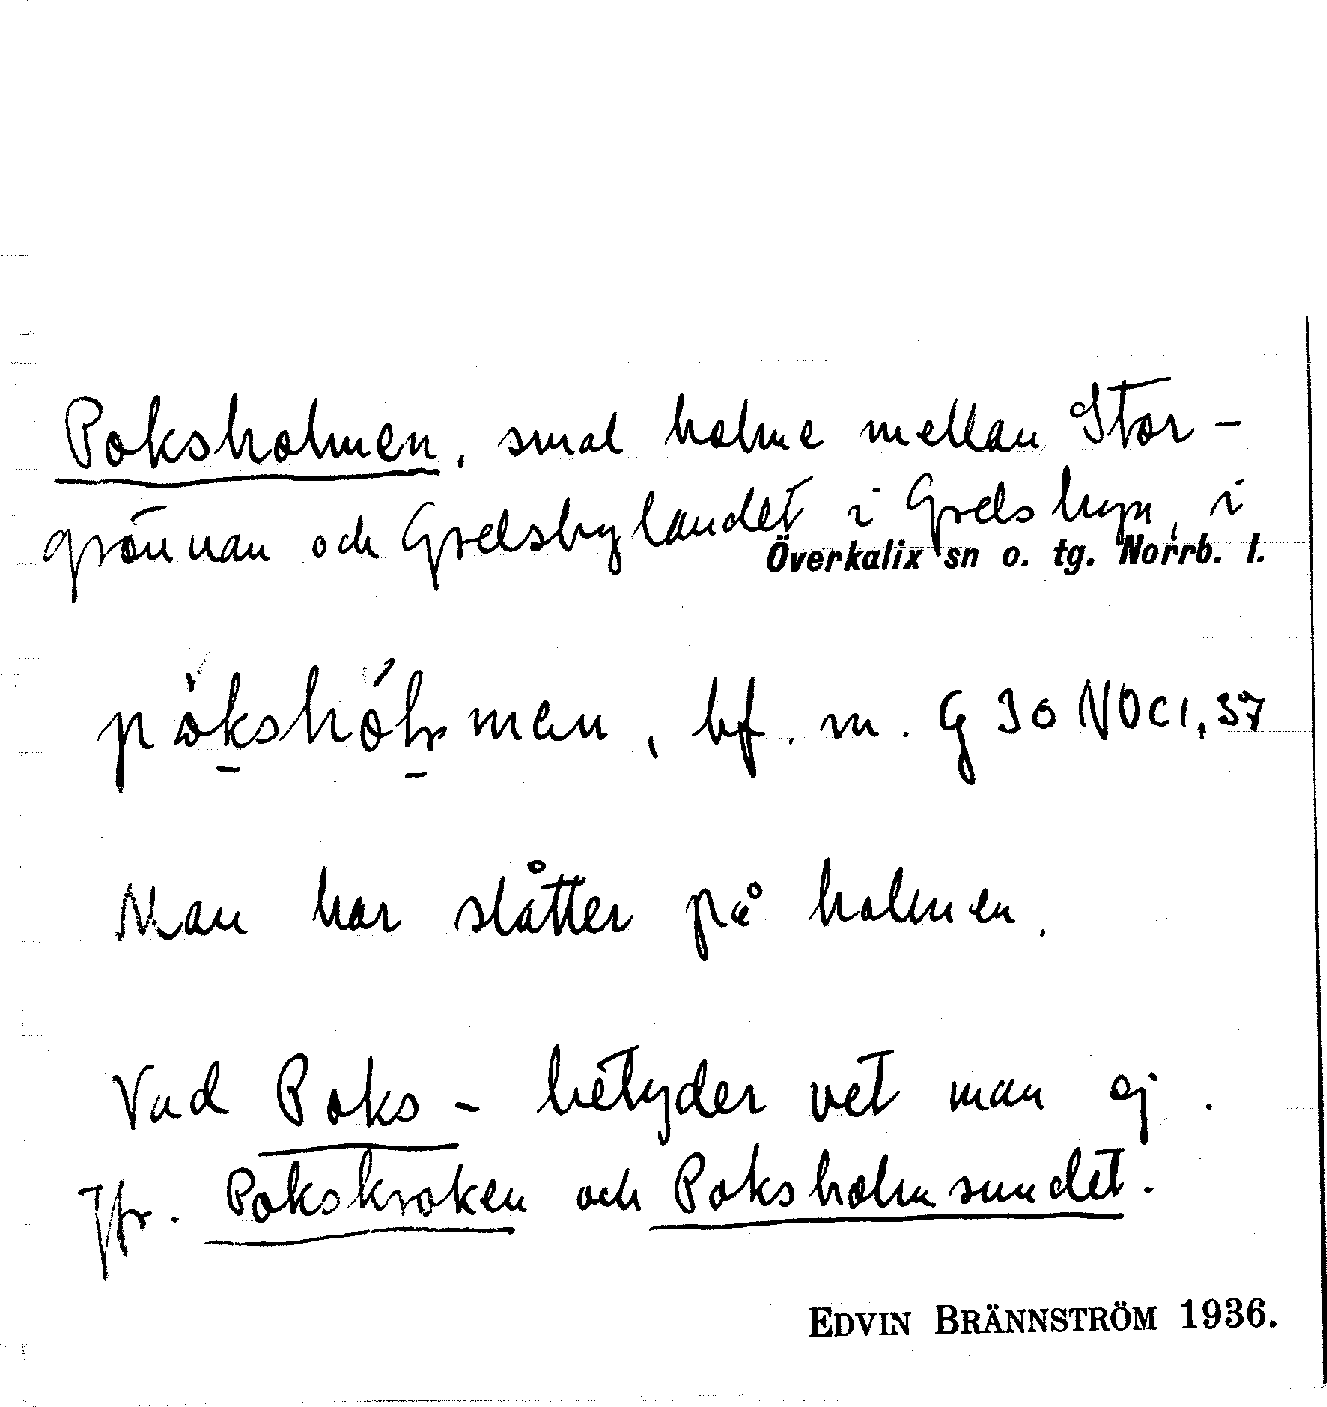 Poksholmen, smal holme mellan Stor-
grönnan och Grelsbylandet i Grelsbyn, i
Överkalix sn o. tg. Norrb. l.
bf. m. G 30 NOCI, 37
Man har slåtter på holmen.
Vad Poks- betyder vet man ej.
Jfr. Pokskroken och Poksholmsundet.
EDVIN BRÄNNSTRÖM 1936.